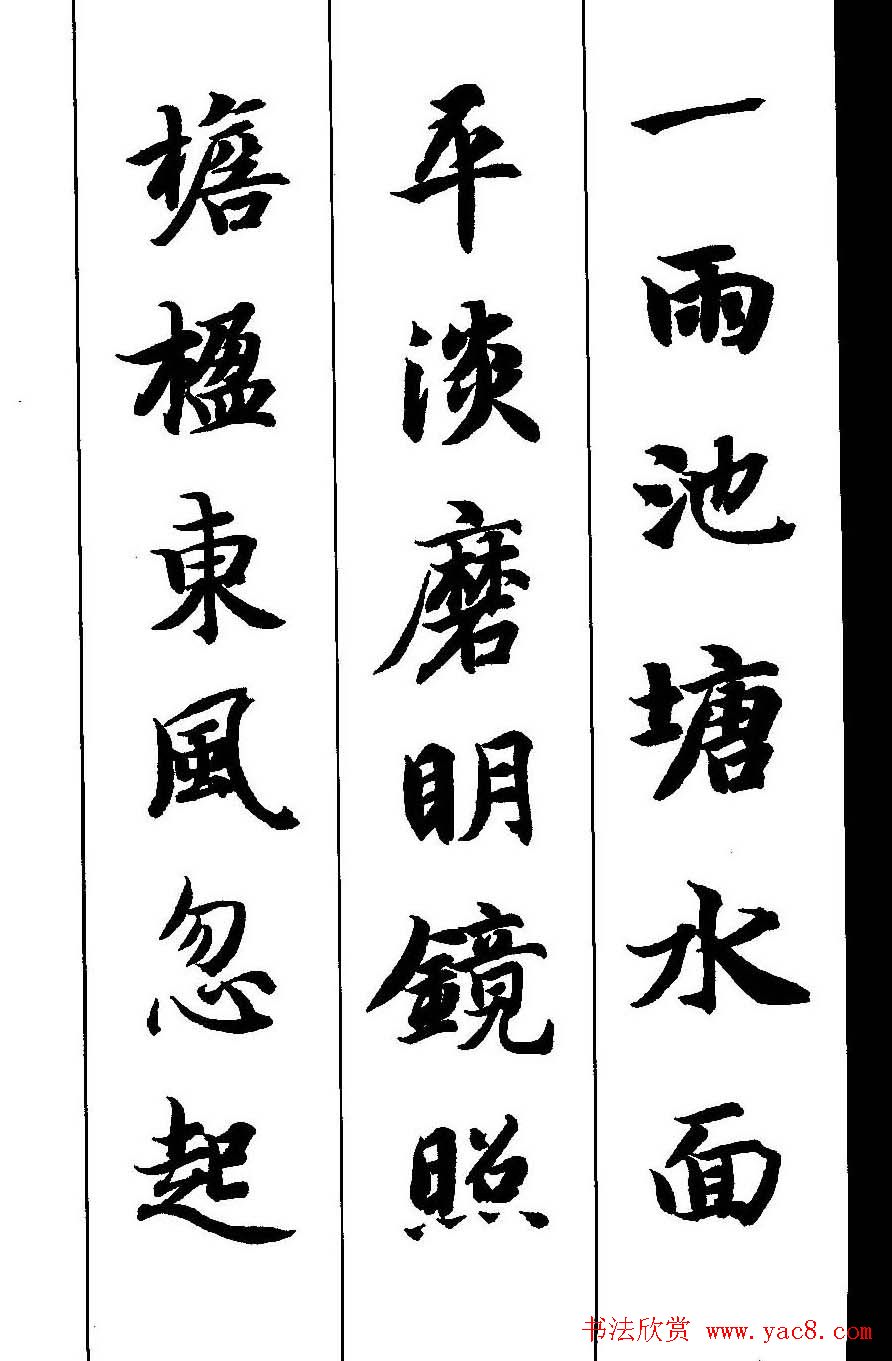 一雨池塘水面
平淡磨明鏡照
檐楹東風忽起
书法欣赏 www.yac8.com